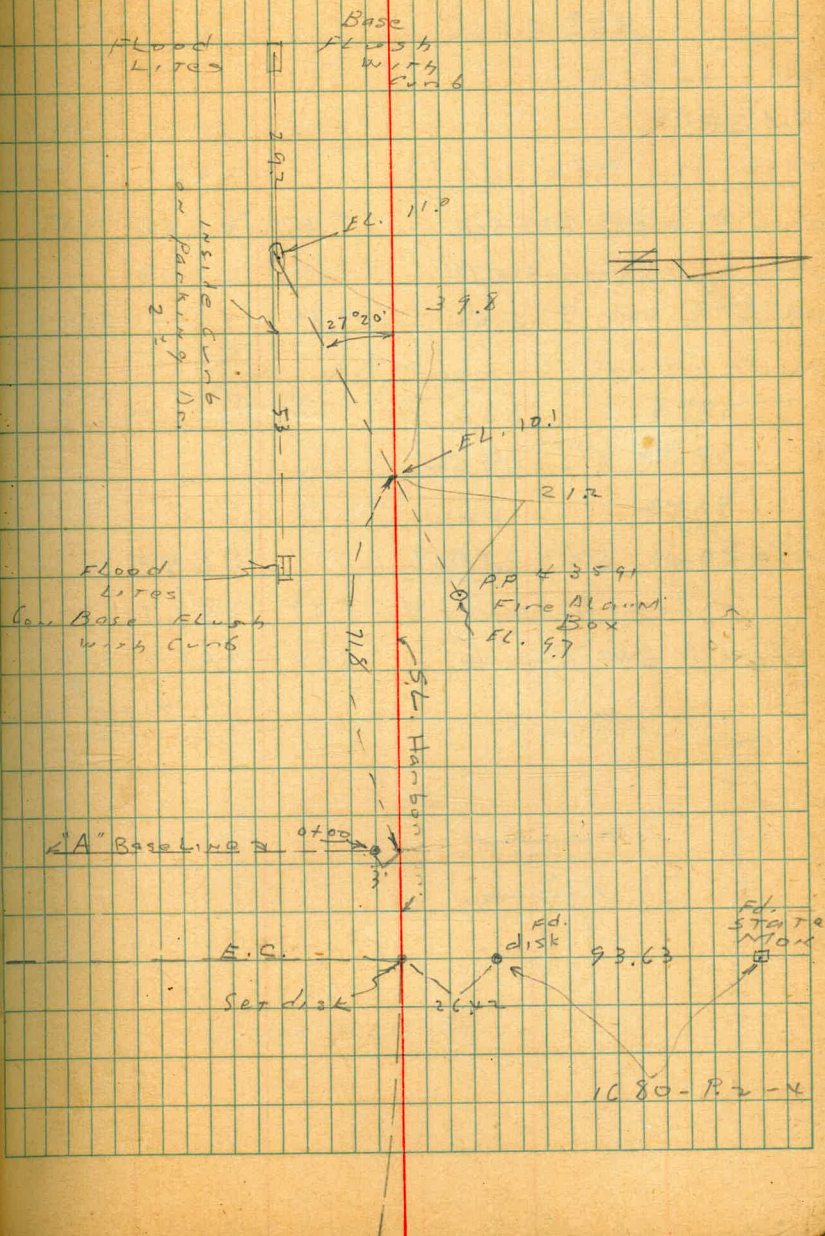 Base
Flood
Lites
Flush
With
Curb
29.2
Inside Curb
on Parking Dr.
2±
EL. 11.0
39.8
27°20'
53
EL. 10.1
21.2
Flood
Lites
Con Base Flush
with Curb
P.P # 3591
Fire Alarm
Box
EL. 9.7
71.8
S.L. Harbor
"A" Base Line
0+00
3'
E.C.
Set disk
Fd.
disk
26.42
93.63
Fd.
State
Mon
1680-P.2-4